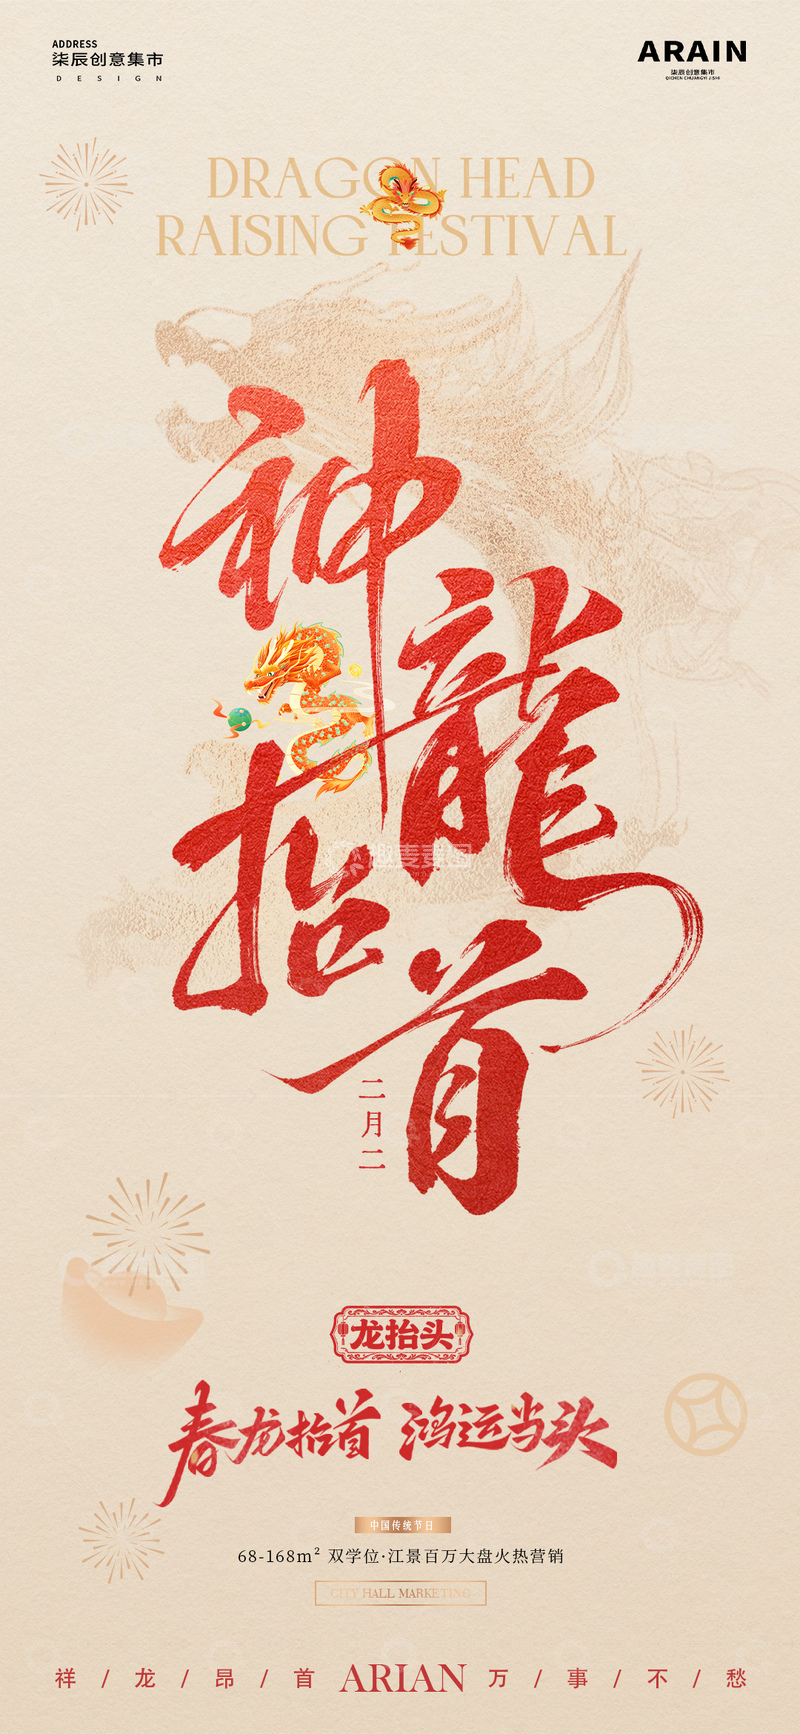 ADDRESS
柒辰创意集市
DESIGN
ARAIN
柒辰创意集市
QICHEN CHUANGYI JISHI
DRAGON HEAD
RAISING FESTIVAL
神龍
抬首
二月二
龙抬头
春龙抬首 鸿运当头
中国传统节日
68-168m² 双学位·江景百万大盘火热营销
CITY HALL MARKETING
祥 / 龙 / 昂 / 首 ARIAN 万 / 事 / 不 / 愁